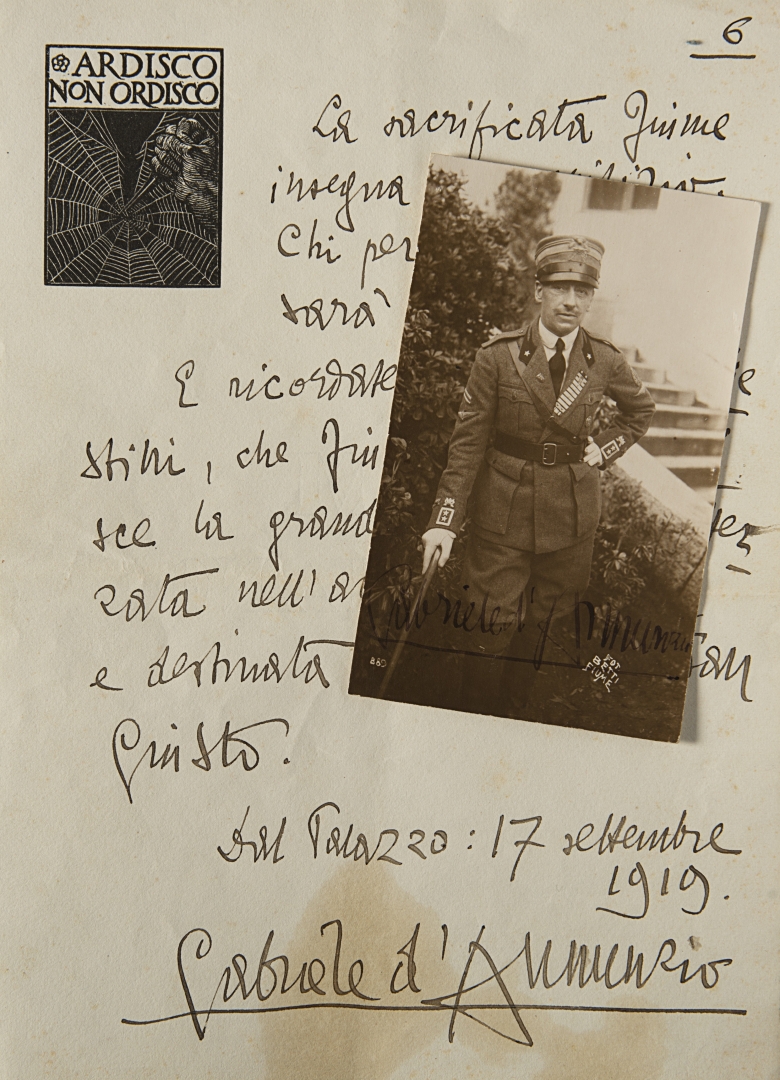 6
ARDISCO
NON ORDISCO
La sacrificata Fiume
insegna
Chi per
sarà
E ricordate
stini, che Fiu
sce la grand
zata nell'a
e destinata
Giusto.
Dal Palazzo: 17 settembre
1919.
Gabriele d'Annunzio
Gabriele d'Annunzio
269
FOT
BETTI
FIUME